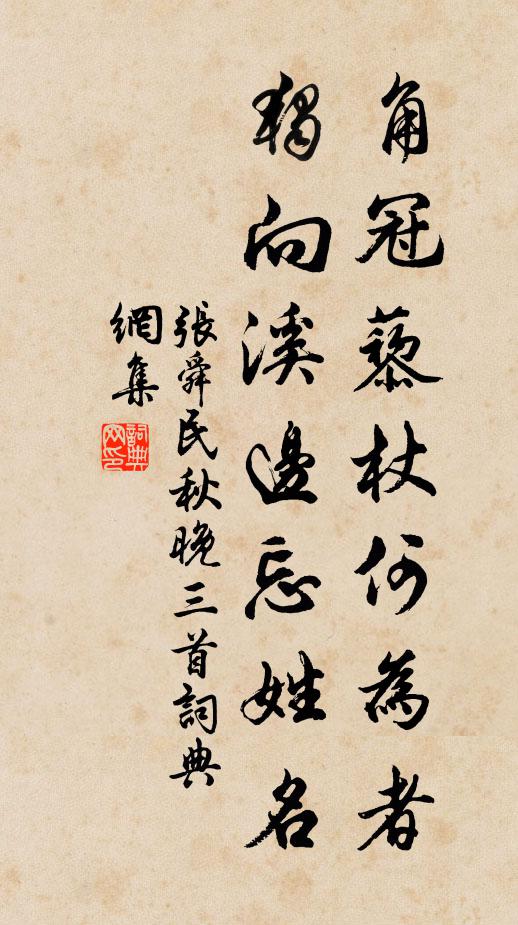 角冠藜杖何為者
獨向溪邊忘姓名
張舜民秋晚三首詞典
網集
詞典
网印